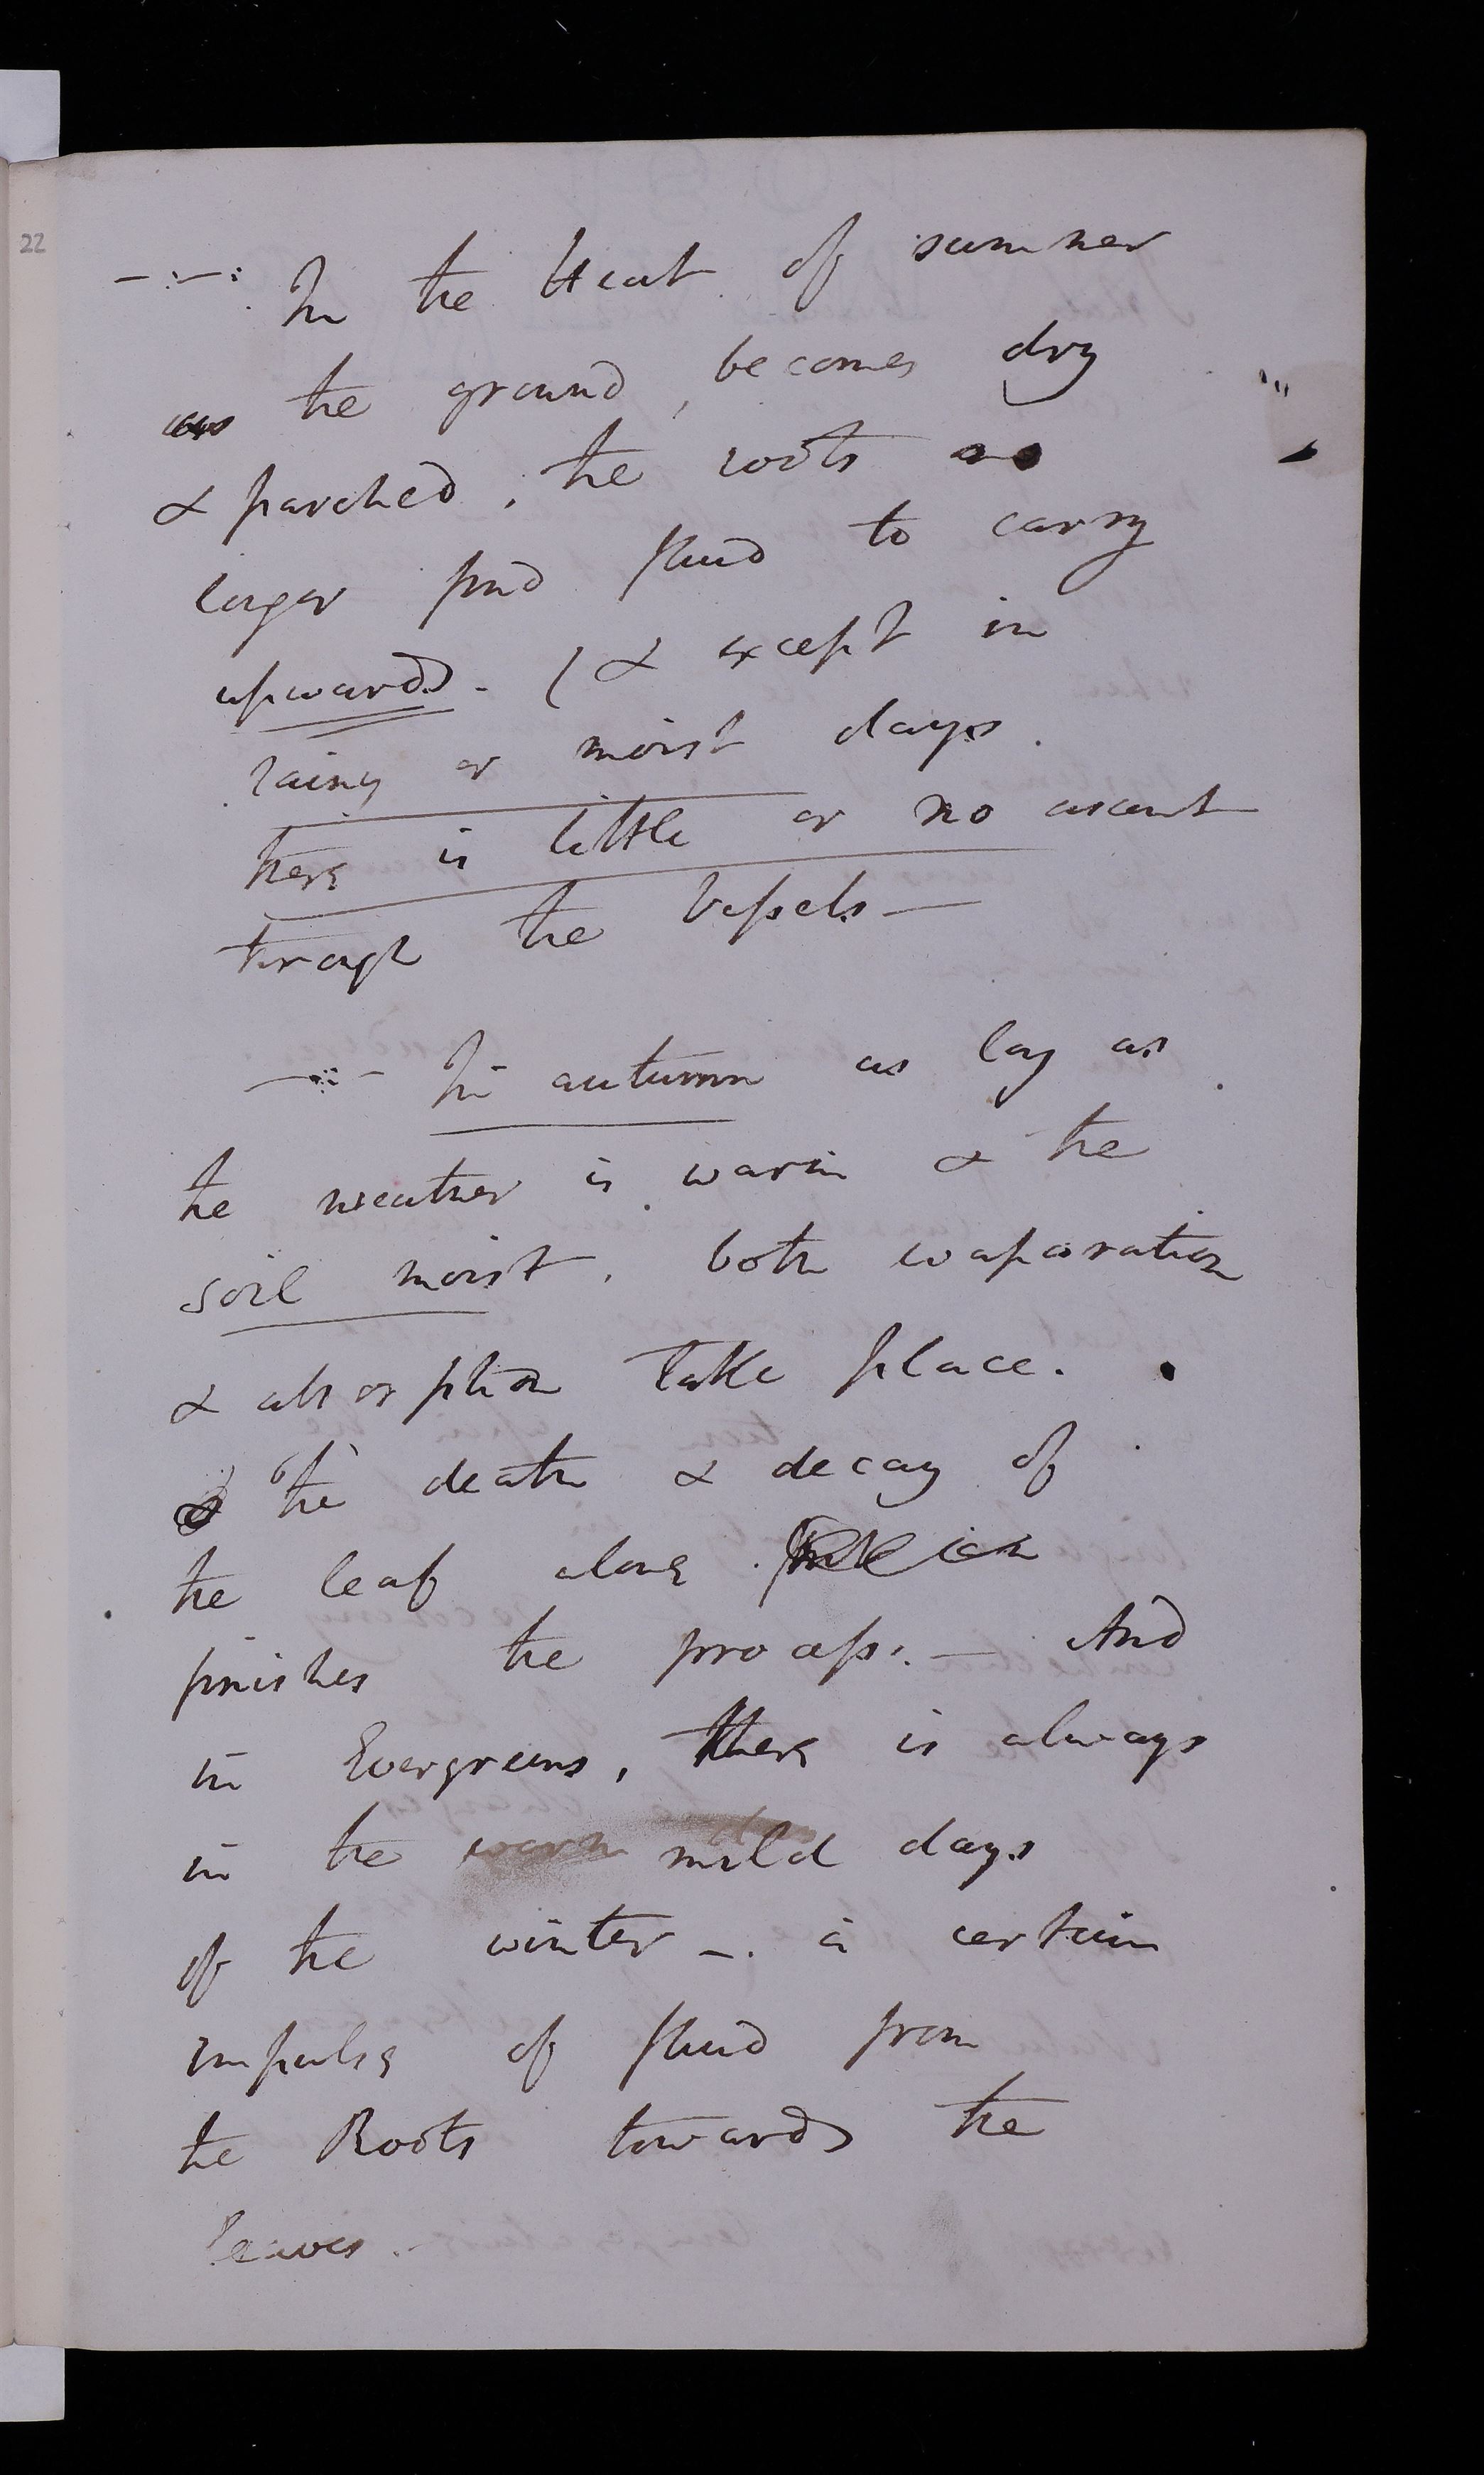 22
—.:—: In the Heat of summer
as the ground, becomes dry
& parched, the roots no
longer find fluid to carry
upwards. (& except in
rainy or moist days.
there is little or no ascent
through the Vessels —
—::— In autumn as long as
the weather is warm & the
soil moist, both evaporation
& absorption take place.
& the death & decay of
the leaf alone
finishes the process. — And
in Evergreens, there is always
in the warm mild days
of the winter —. a certain
impulse of fluid from
the Roots towards the
leaves. —